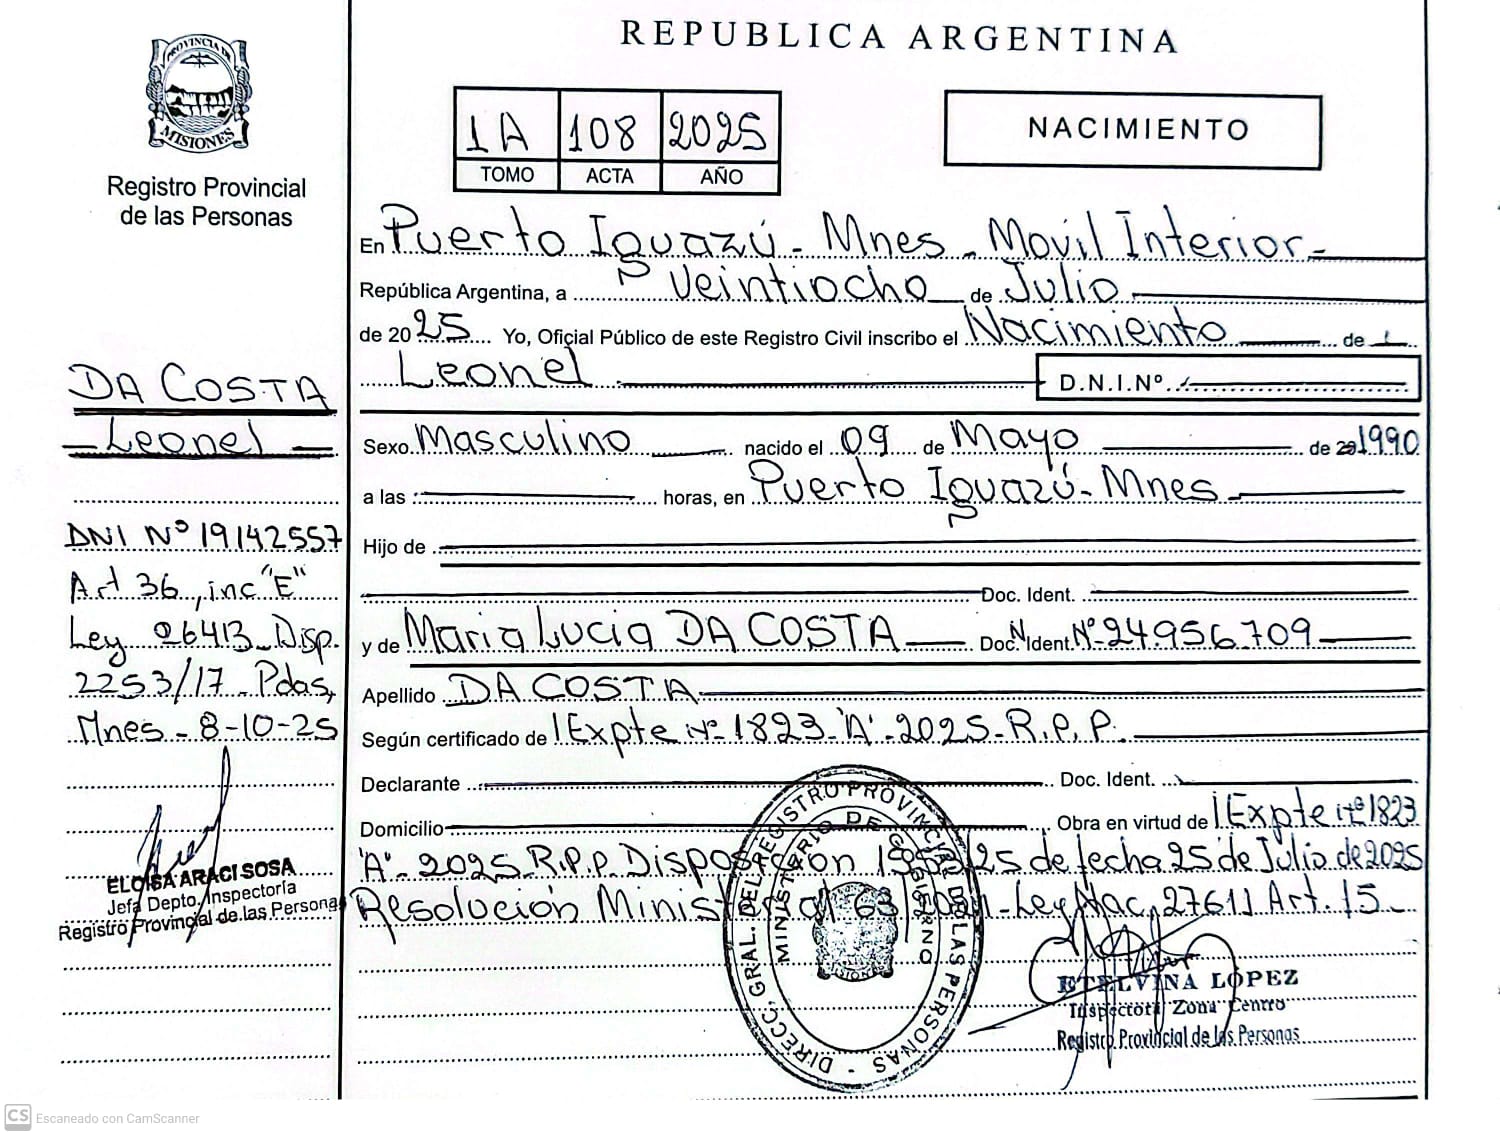 REPUBLICA ARGENTINA
PROVINCIA DE
MISIONES
Registro Provincial
de las Personas
1A 108 2025
TOMO ACTA AÑO
NACIMIENTO
En Puerto Iguazú - Mnes - Movil Interior -
República Argentina, a Veintiocho de Julio
de 2025 Yo, Oficial Público de este Registro Civil inscribo el Nacimiento de
Leonel D.N.I.Nº
Sexo Masculino nacido el 09 de Mayo de 1990
a las horas, en Puerto Iguazú - Mnes
Hijo de
Doc. Ident.
y de Maria Lucia DA COSTA Doc. Ident. Nº 24.956.709
Apellido DA COSTA
Según certificado de Expte Nº 1823 "A" - 2025 - R.P.P.
Declarante Doc. Ident.
Domicilio Obra en virtud de Expte Nº 1823
"A" - 2025 - R.P.P. Disposición /25 de fecha 25 de Julio de 2025
Resolución Ministerial 63 - Ley Nac. 27611 Art. 15
DA COSTA
Leonel
DNI Nº 19142557
Art 36, inc "E"
Ley 26413 - Disp.
2253/17 - Pdas,
Mnes - 8-10-25
ELOISA ARACI SOSA
Jefa Depto. Inspectoría
Registro Provincial de las Personas
DIRECC. GRAL. DEL REGISTRO PROVINCIAL DE LAS PERSONAS -
MINISTERIO DE GOBIERNO
MISIONES
ETELVINA LÓPEZ
Inspectora Zona Centro
Registro Provincial de las Personas
CS Escaneado con CamScanner